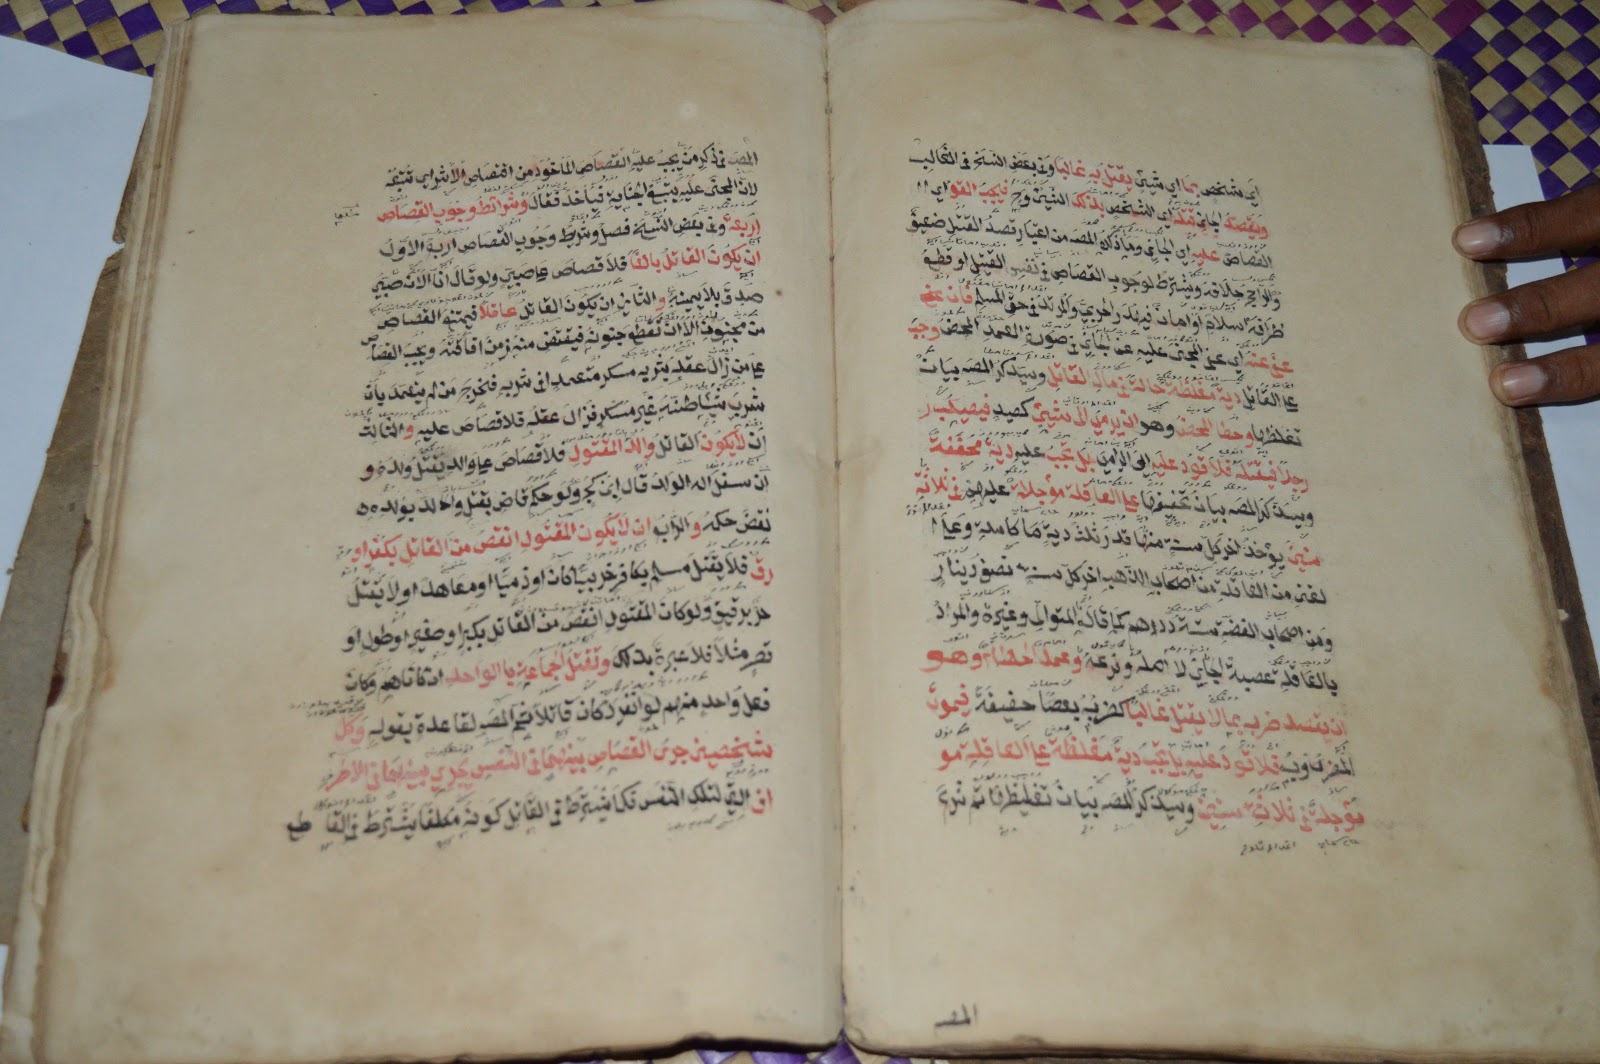 اي شخص بما اي شيئ يقتل به غالبا وفي بعض النسخ في الغالب
ويقصد الجاني قتله اي الشخص بذلك الشيئ وح فيجب القود اي ا
القصاص عليه اي الجاني وما ذكره المصـ من اعتبار قصد القتل ضعيف
والراجح خلافه ويشترط لوجوب القصاص في نفس القتيل او قطع
اطرافه اسلام او امان فيهدر الحربي والمرتد في حق المسلم فان عفى
عفى عنه اي عفى المجني عليه عن الجاني في صورة العمد المحض وجب
على القاتل دية مغلظة حالة في مال القاتل وسيذكر المصـ بيان
تغليظها وخطا المحض وهو ان يرمي الى شيئ كصيد فيصيب
رجلا فيقتله فلا قود عليه اى الرامي بل تجب عليه دية مخففة
وسيذكر المصـ بيان تخفيفها على العاقلة مؤجلة عليهم في ثلاثة
سنين يؤخذ اخر كل سنة منها قدر ثلث دية كاملة وعلى ا
لغني من العاقلة من اصحاب الذهب اخر كل سنة نصف دينار
ومن اصحاب الفضة ستة دراهم كما قاله المتولي وغيره والمراد
بالعاقلة عصبة الجاني لا اصله وفرعه وعمد الخطاء وهو
ان يقصد ضربه بما لا يقتل غالبا كضربه بعصا خفيفة فيموت
المضروب فلا قود عليه بل تجب دية مغلظة على العاقلة مو
مؤجلة في ثلاثة سنين وسيذكر المصـ بيان تغليظها ثم شرع
المصـ
المصـ في ذكر من يجب عليه القصاص الماخوذ من اقتصاص الاثر اي تتبعه
لان المجنى عليه يتبع الجناية فياخذ فقال وشرائط وجوب القصاص
اربعة وفي بعض النسخ فصل وشرائط وجوب القصاص اربع الاول
ان يكون القاتل بالغا فلا قصاص على صبي ولو قال انا الان صبي
صدق بلا يمين والثاني ان يكون القاتل عاقلا فيمتنع القصاص
من مجنون الا ان تقطع جنونه فيقتص منه زمن افاقته ويجب القصاص
على من زال عقله بشرب مسكر متعمد في شربه فخرج من لم يتعمد بان
شرب شيئا ظنه غير مسكر فزال عقله فلا قصاص عليه والثالث
ان لا يكون القاتل والد المقتول فلا قصاص على والد بقتل ولده و
ان سفل اله الولد قال ابن كج ولو حكم قاض بقتل والد بولده
نقض حكمه والرابع ان لا يكون المقتول انقص من القاتل بكفر او
رق فلا يقتل مسلم بكافر حربيا كان او ذميا او معاهدا ولا يقتل
حر برقيق ولو كان المقتول انقص من القاتل بكبر او صغر او طول او
قصر مثلا فلا عبرة بذلك وتقتل الجماعة بالواحد ان كافاهم وكان
فعل واحد منهم لو انفرد كان قاتلا ثم المصـ لقاعدة بقوله وكل
شخصين جرى القصاص بينهما في النفس يجري بينهما في الاطر
اف التي لتلك النفس فكما يشترط في القاتل كونه مكلفا يشترط في القاطع